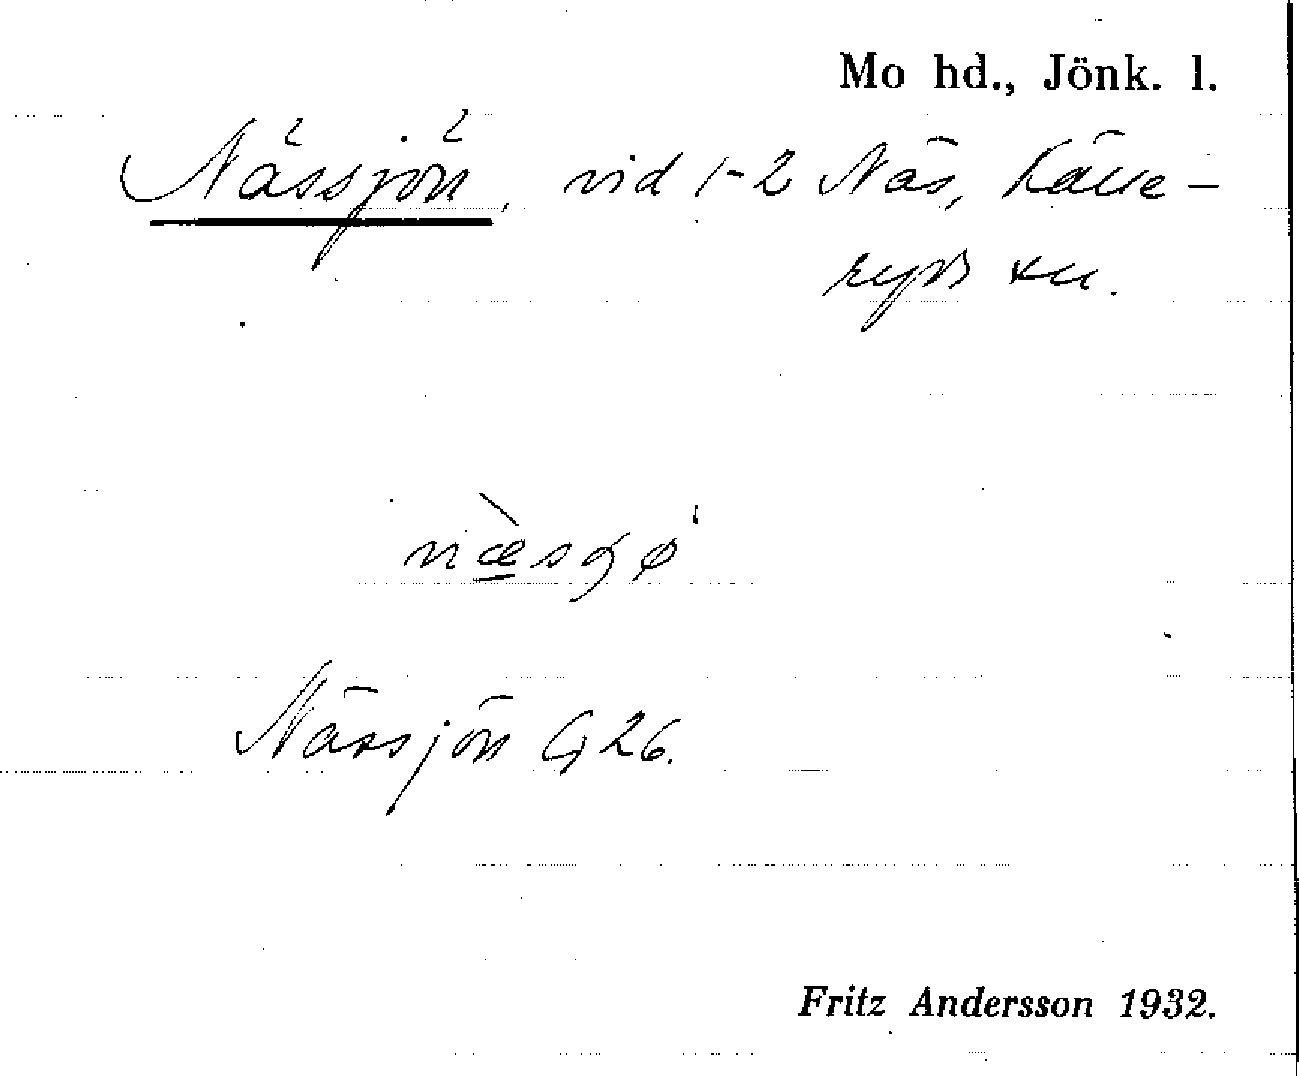 Mo hd., Jönk. l.
Nässjön, vid 1-2 Näs, Källe-
ryds sn.
Nässjön G 26.
Fritz Andersson 1932.